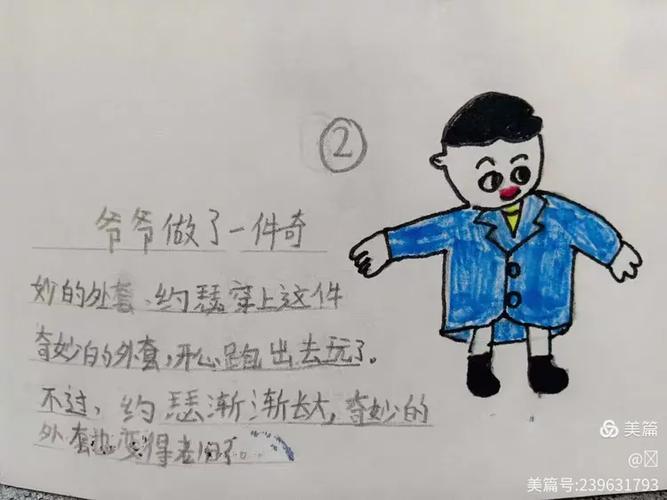 ②
爷爷做了一件奇
妙的外套、约瑟穿上这件
奇妙的外套,开心跑出去玩了。
不过、约瑟渐渐长大,奇妙的
外套也变得老旧了。
美篇
@
美篇号:239631793